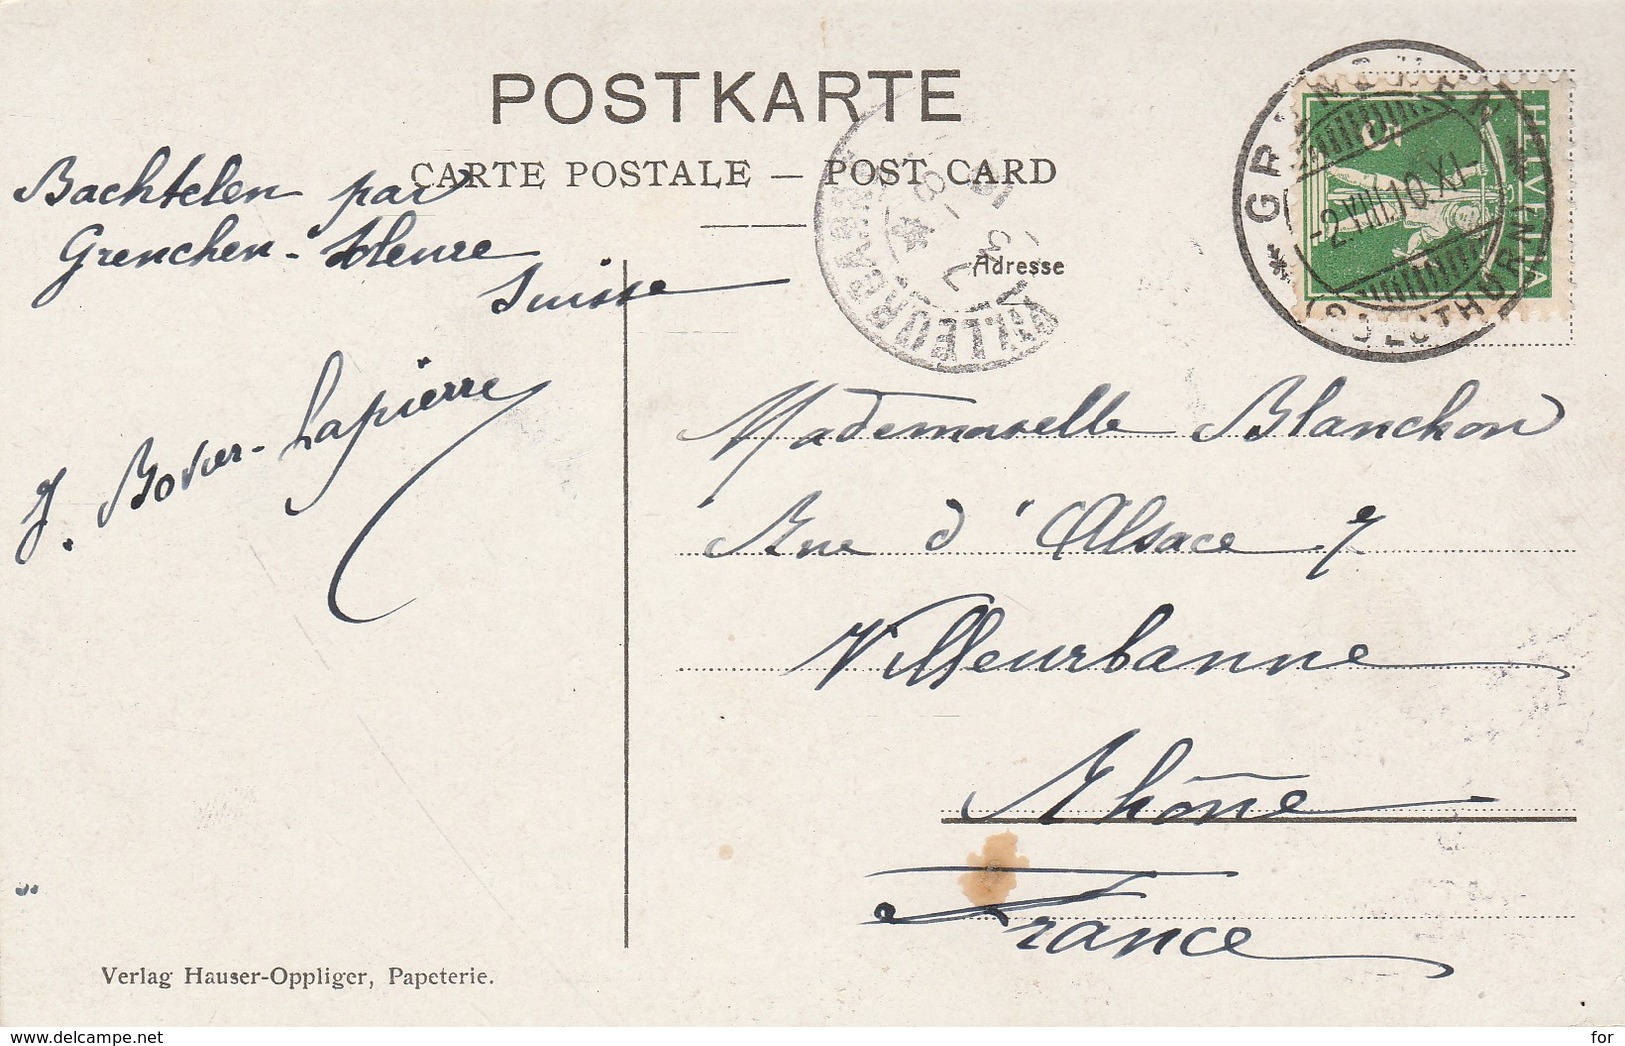 POSTKARTE
CARTE POSTALE — POST CARD
Adresse
Bachtelen par
Grenchen - Soleure
Suisse
J. Bovier-Lapierre
GRENCHEN
-2.VIII.10.XI-
(SOLOTHURN)
HELVETIA
5
VILLEURBANNE
Mademoiselle Blanchon
Rue d'Alsace 7
Villeurbanne
Rhône
France
Verlag Hauser-Oppliger, Papeterie.
www.delcampe.net
for